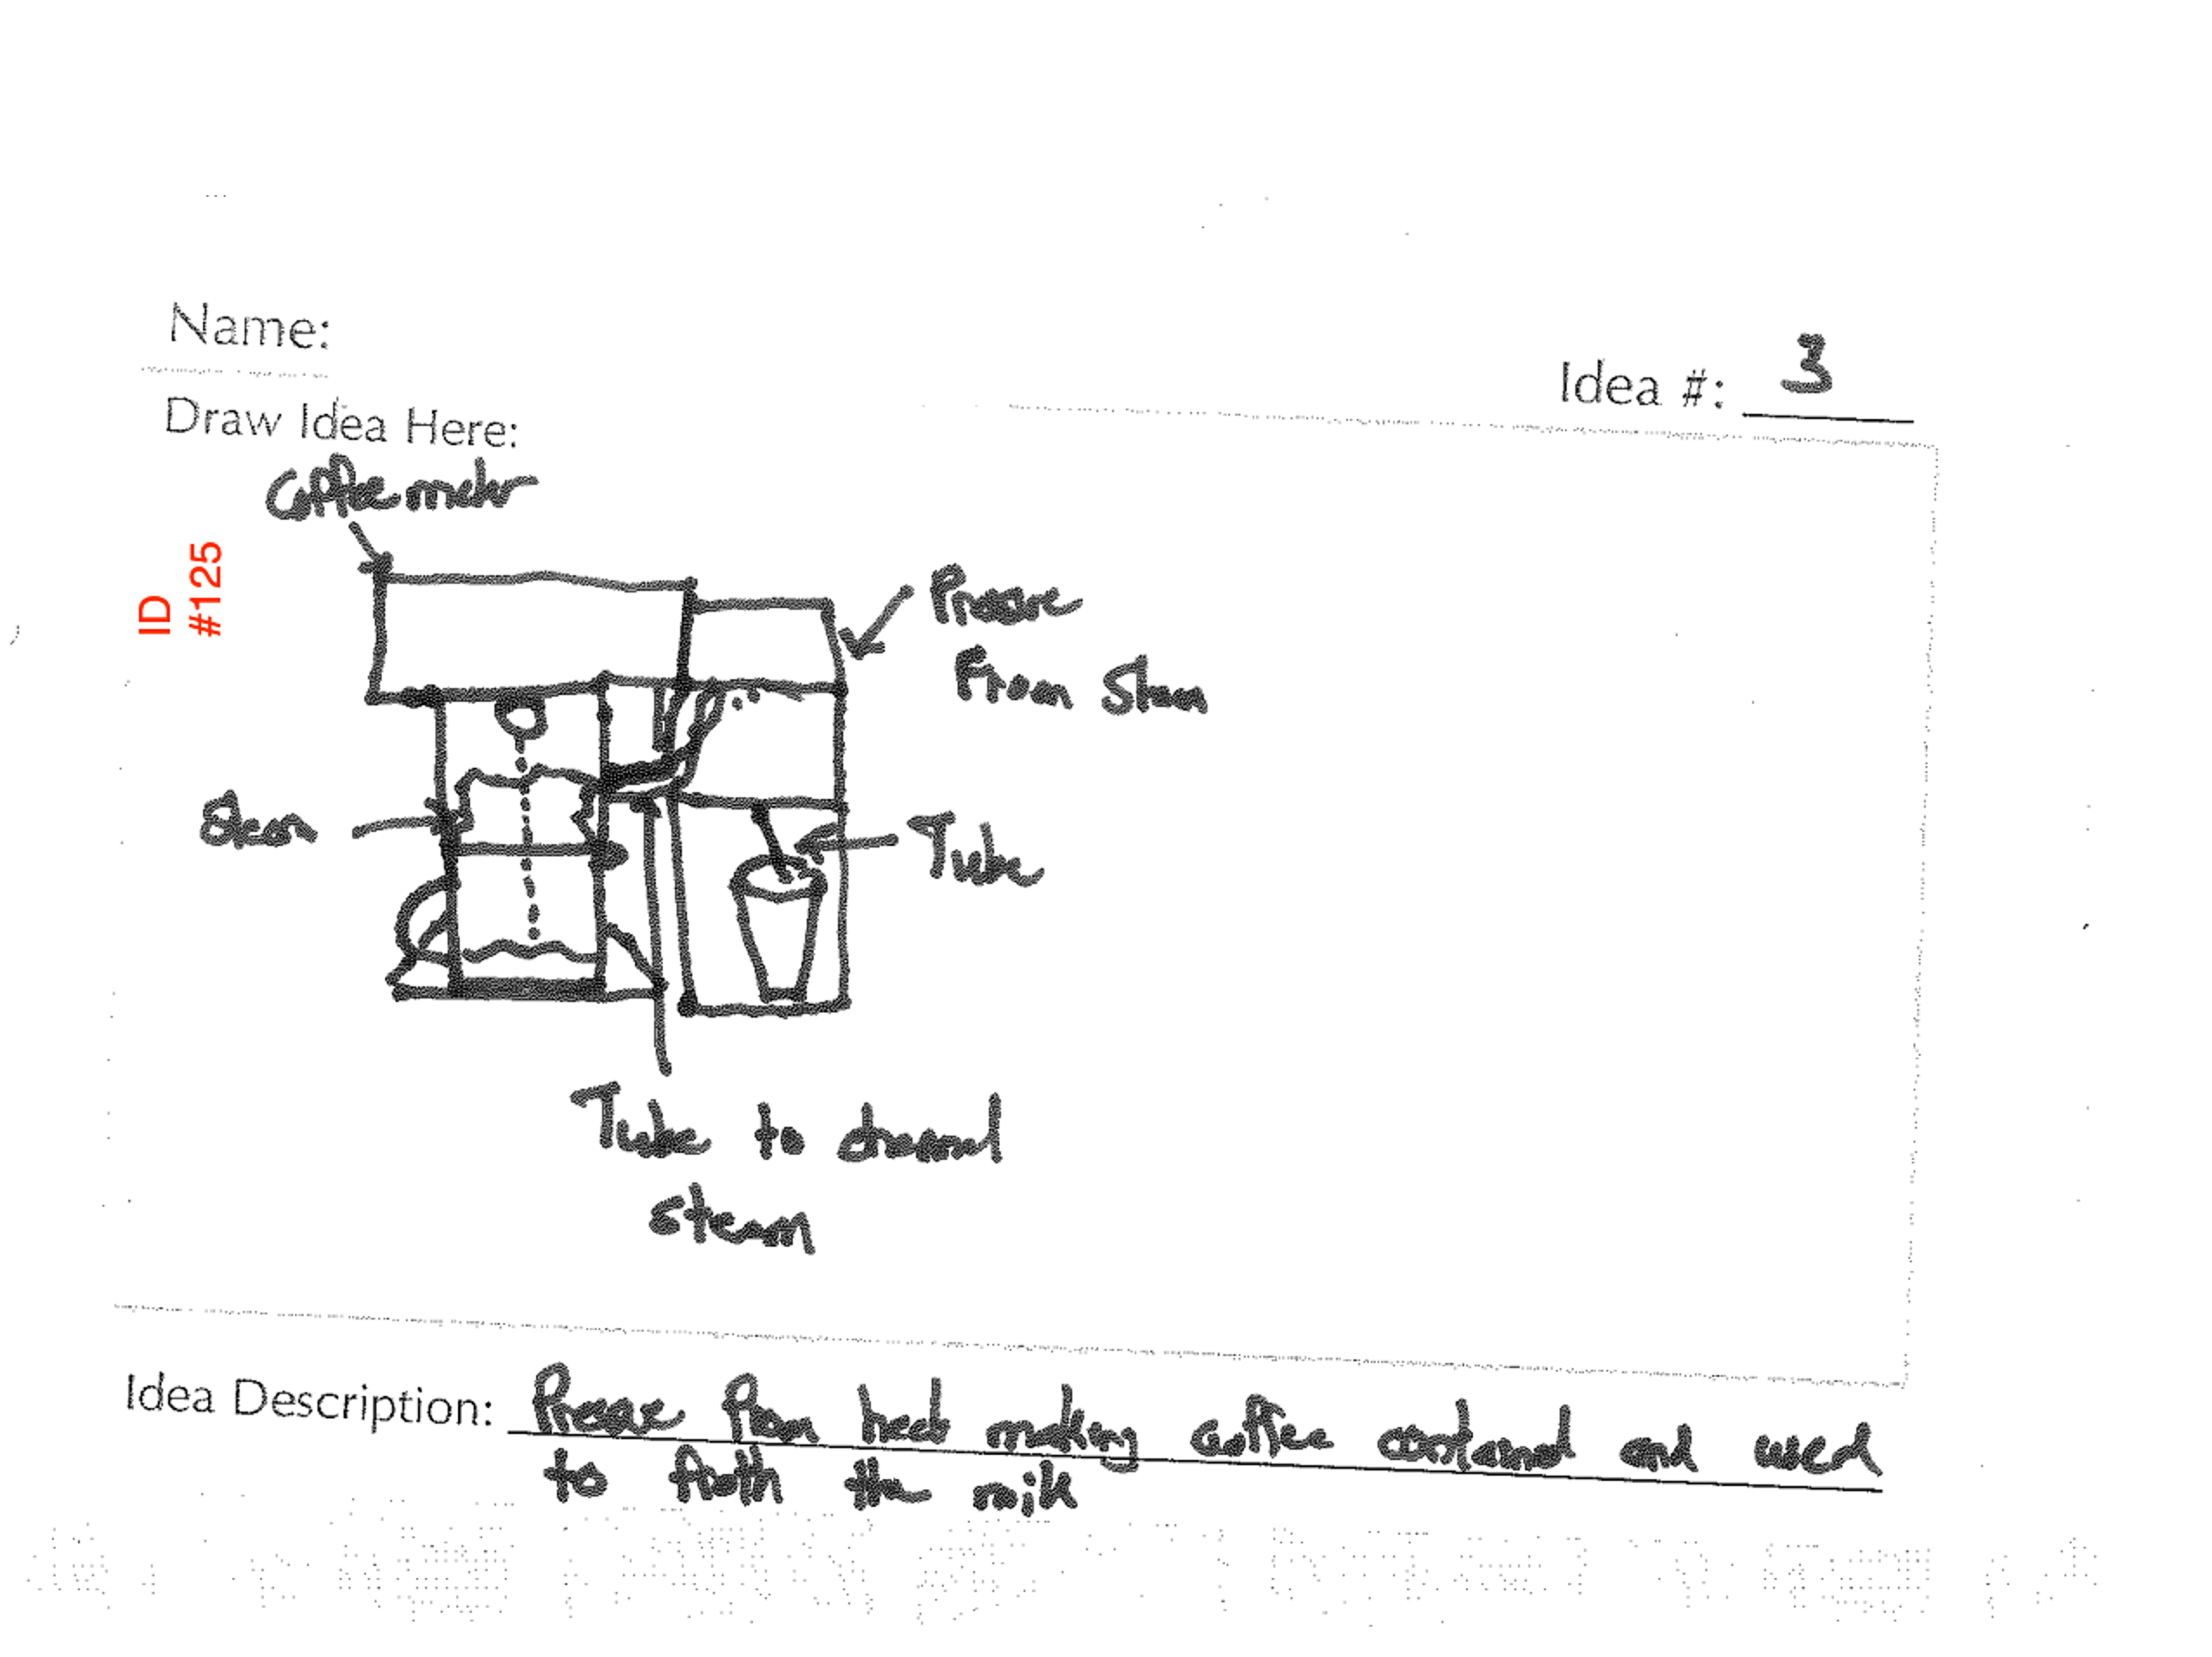 Name:
Idea #: 3
Draw Idea Here:
Coffee maker
ID
#125
Pressure
From Steam
Steam
Tube
Tube to channel
steam
Idea Description: Pressure from heat making coffee contained and used
to froth the milk